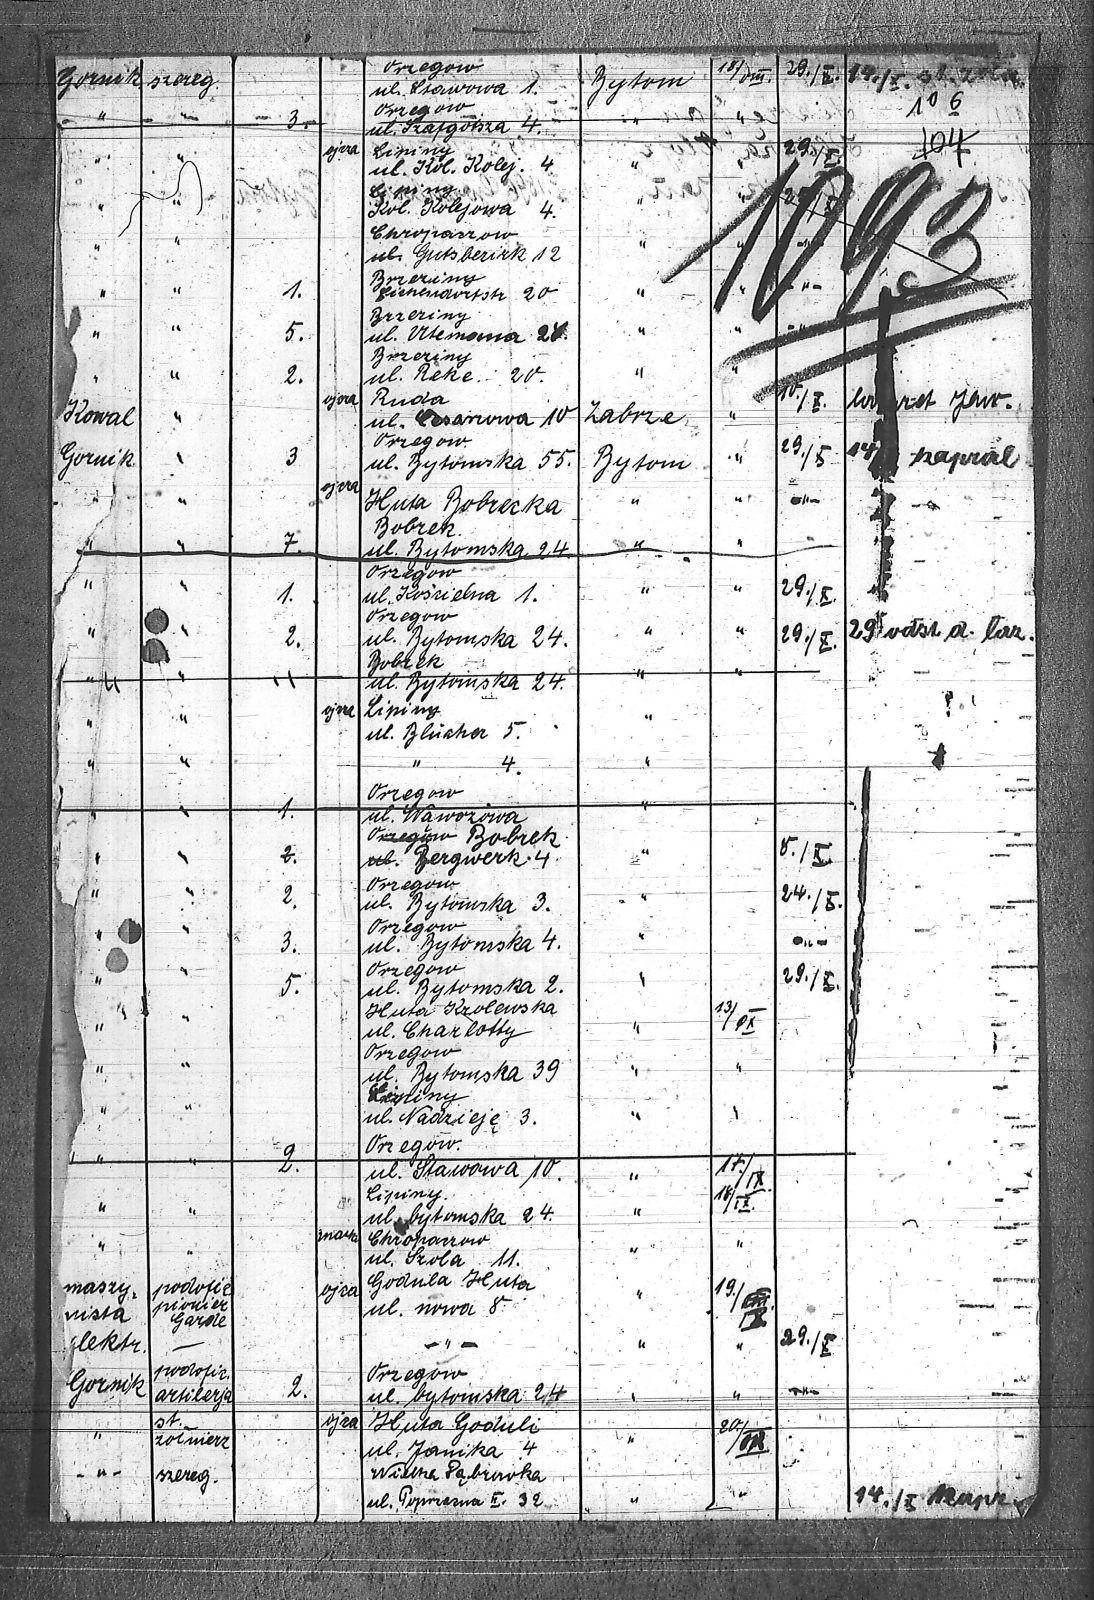 Gornik szereg. Orzegow ul. Stawowa 1. Bytom 18/VIII. 29./X. 14./X. st.
" " 3. Orzegow ul. Szafgotsza 4. " " 106
" " ojca Lipiny ul. Kol. Kolej. 4. " " 29./X. 104
" " Lipiny Kol. Kolejowa 4. " "
1093
" " Chropaszow ul. Gutsbezirk 12 " "
" " 1. Brzeziny Eichendorfstr 20 " " -"-
" " 5. Brzeziny ul. Utemana 28. " " -"-
" " 2. Brzeziny ul. Reke. 20. " "
Kowal " ojca Ruda ul. 10 Zabrze " 10./X. lazaret
Gornik " 3 Orzegow ul. Bytomska 55. Bytom " 29./X 14 kapral
" " ojca Huta Bobrecka " " -"-
" " 7. Bobrek. ul. Bytomska 24. " "
" " 1. Orzegow ul. Kośzielna 1. " " 29./X.
" " 2. Orzegow ul. Bytomska 24. " " 29./X. 29 odst d. laz.
" " " Bobrek ul. Bytomska 24. " "
" " ojca Lipiny ul. Blücher 5. "
" " " 4. "
" " 1. Orzegow ul. Wąwozowa "
" " 2. Orzegow Bobrek ul. Bergwerk 4. " " 8./X
" " 2. Orzegow ul. Bytomska 3. " 24./X.
" " 3. Orzegow ul. Bytomska 4. " -"-
" " 5. Orzegow ul. Bytomska 2. " 29./X.
" " Huta Krolewska ul. Charlotty " 13/IX
" " Orzegow ul. Bytomska 39 " "
" " Lipiny ul. Nadzieję 3. " "
" " 2. Orzegow. ul. Stawowa 10. " 17./IX
" " Lipiny. ul. bytomska 24. " 18/IX.
" " Chropaszow ul. Szola 11. " "
maszynista podofic pionier Garde ojca Godula Huta ul. nowa 8 " 19./IX
elektr. — -"- " " 29./X
Gornik podofic. artilerja 2. Orzegow ul. bytomska 24 " " -"-
" st. żołnierz ojca Huta Goduli ul. Janika 4 " 20./IX
-"- szereg. Dąbrowka ul. Poprzeczna II. 32 " " 14./X kapr.